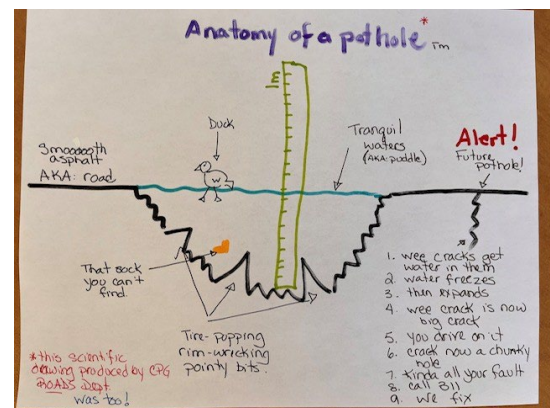 Anatomy of a pothole* TM
m
Duck
Smooooooth
asphalt
AKA: road
Tranquil
waters
(AKA: puddle)
Alert!
Future
pothole!
That sock
you can't
find.
Tire-popping
rim-wrecking
pointy bits.
1. wee cracks get
water in them
2. water freezes
3. then expands
4. wee crack is now
big crack
5. you drive on it
6. crack now a chunky
hole
7. kinda all your fault
8. call 311
9. we fix
*this scientific
drawing produced by CPG
ROADS Dept
was too!